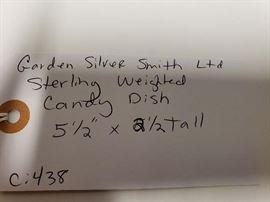 Garden Silver Smith Ltd
Sterling Weighted
Candy Dish
5 1/2" x 2 1/2 Tall
C:438